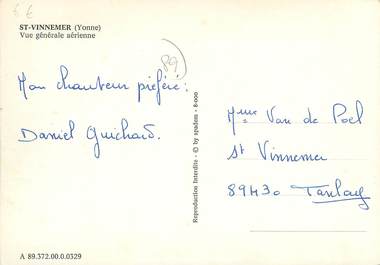 6 €
ST-VINNEMER (Yonne)
Vue générale aérienne
89
Mon chanteur préféré :
Daniel Guichard.
Reproduction Interdite - © by spadem - 8-000
Mme Van de Poel
St Vinnemer
89430 Tanlay
A 89.372.00.0.0329